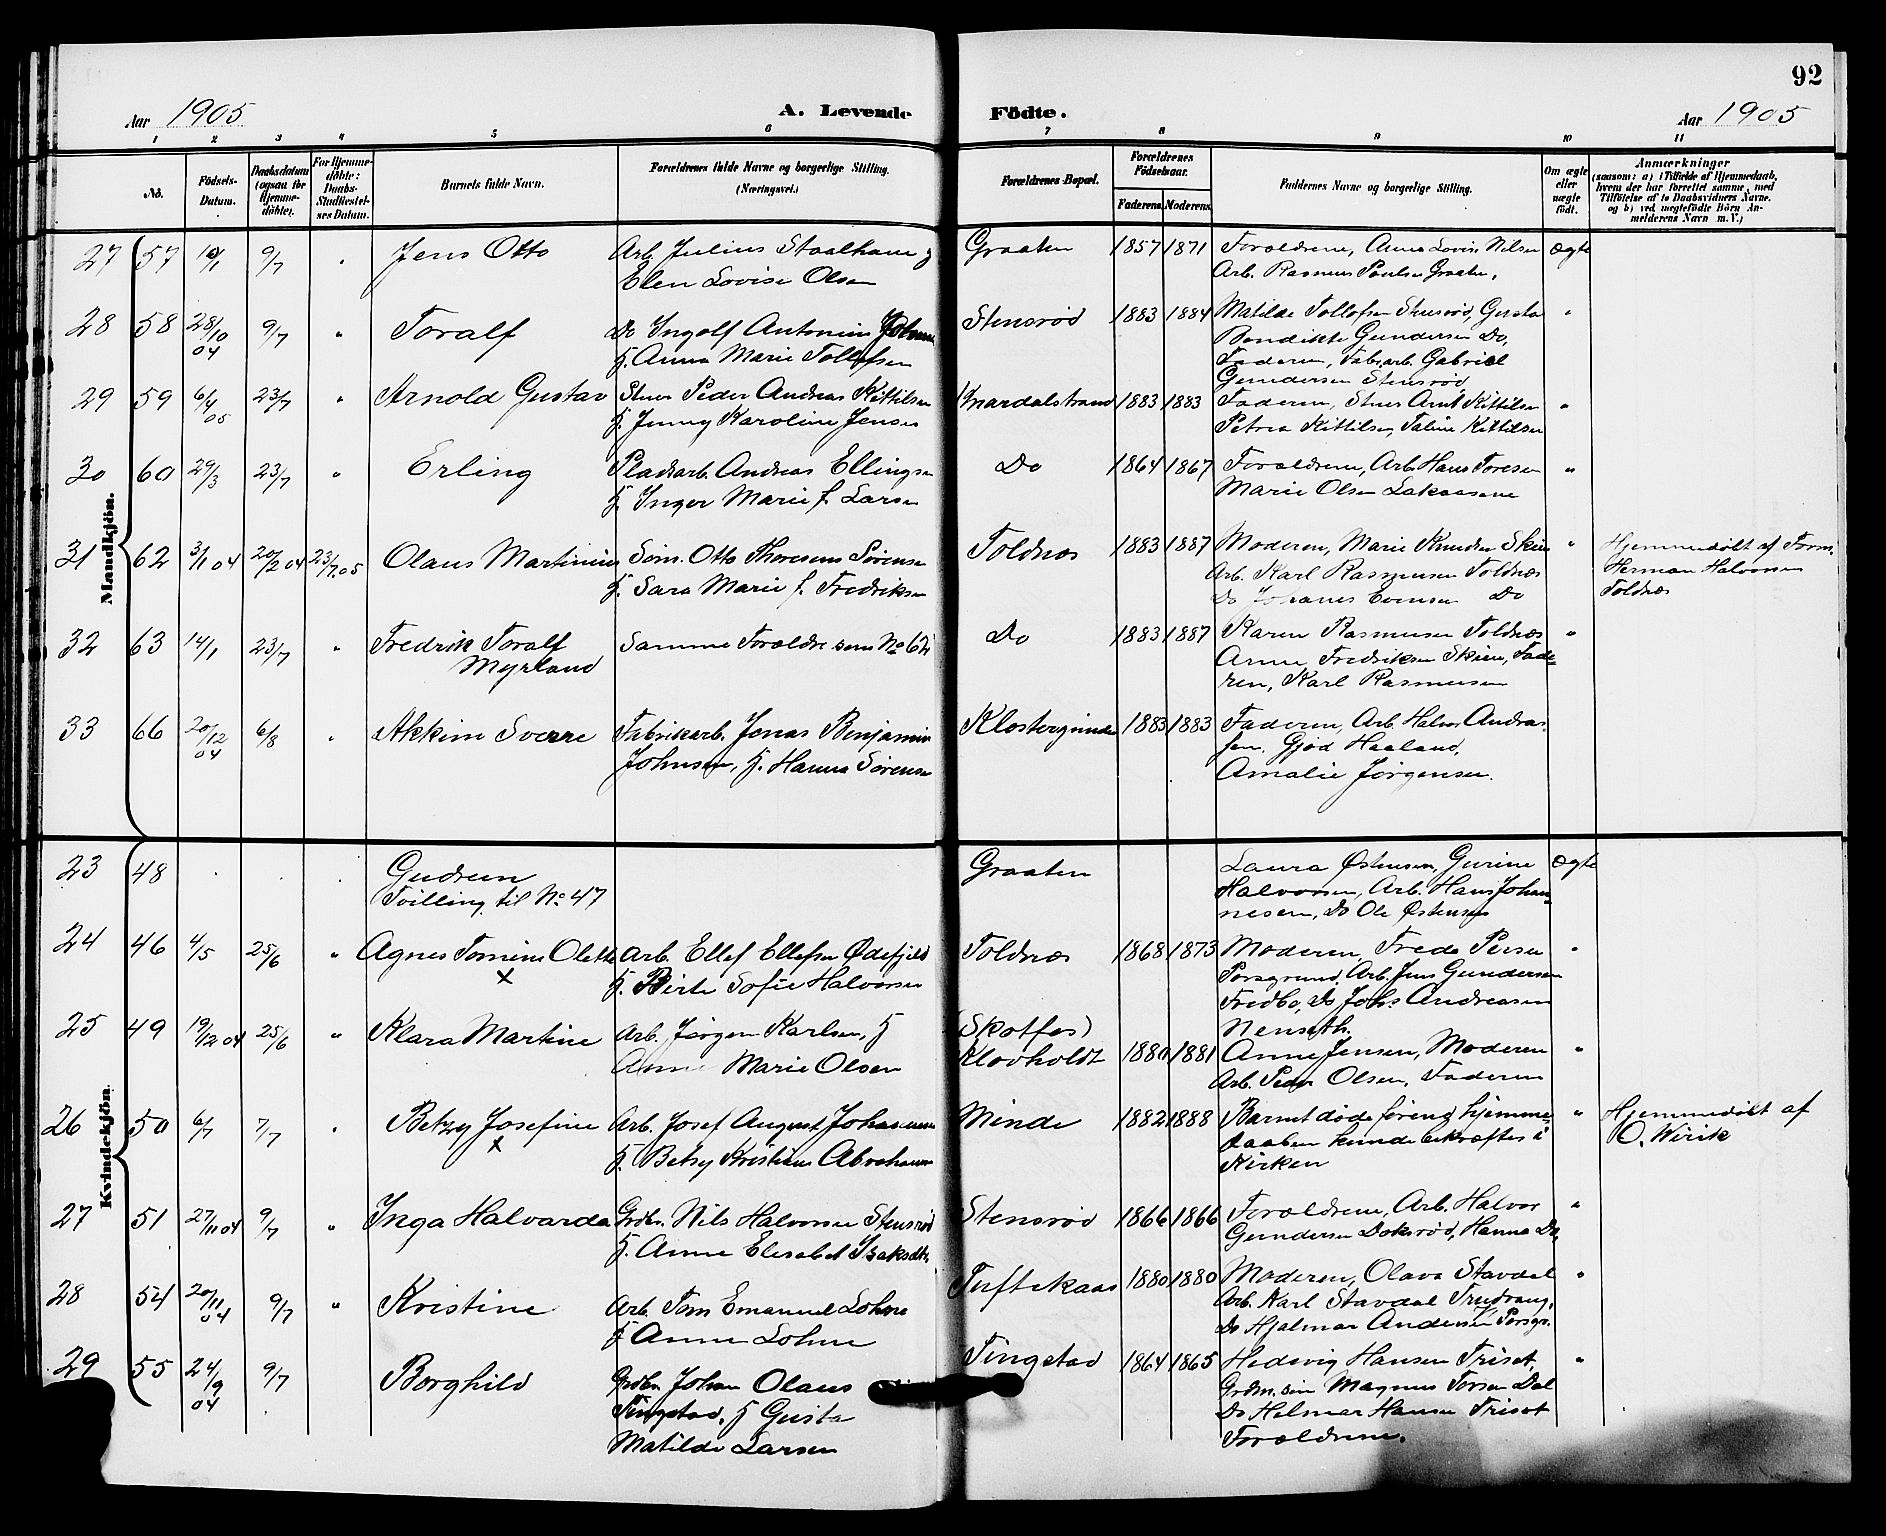 92
Aar 1905
A. Levende Födte.
Aar 1905
1 2 3 4 5 6 7 8 9 10 11
No.
Födsels-Datum.
Daabsdatum (ogsaa for Hjemme-döbte).
For Hjemme-döbte: Daabs-Stadfæstel-ses Datum.
Barnets fulde Navn.
Forældrenes fulde Navne og borgerlige Stilling. (Næringsvei.)
Forældrenes Bopæl.
Forældrenes Födselsaar.
Faderens. Moderens.
Faddernes Navne og borgerlige Stilling.
Om ægte eller uægte født.
Anmærkninger
(saasom: a) i Tilfælde af Hjemmedaab, hvem der har forrettet samme, med Tilføielse af to Daabsvidners Navne, og b) ved uægtefödte Börn An-melderens Navn m. V.)
Mandkjön.
27 57 10/1 9/7 " Jens Otto
Arb. Julius Staalhane g
Elen Lovise Olsen
Graaten 1857 1871
Forældrene, Anna Lovise Nilsen
Arb. Rasmus Paulsen Graaten,
ægte
28 58 28/10 04 9/7 " Toralf
Do Ingolf Antonius Johnsen
H. Anna Marie Tollefsen
Stensrød 1883 1884
Matilde Tollefsen Stensrød, Gusta
Bendikte Gundersen Do,
Faderen, Fabr.arb. Gabriel
Gundersen Stensrød
"
29 59 6/4 05 23/7 " Arnold Gustav
Stuer Peder Andreas Kittilsen
H. Jenny Karoline Jensen
Knardalstrand 1883 1883
Faderen, Stuer Arnt Kittilsen
Petrea Kittilsen, Taline Kittilsen
"
30 60 29/3 23/7 " Erling
Pladsarb. Andreas Ellingsen
H. Inger Marie f. Larsen
Do 1864 1867
Forældrene, Arb. Hans Toresen
Marie Olsen Lakaasene
"
31 62 3/1 04 20/2 04 23/7.05 Olaus Martinius
Søm. Otto Thoresens Sørensen
H. Sara Marie f. Fredriksen
Toldnæs 1883 1887
Moderen, Marie Knudsen Skien
Arb. Karl Rasmusen Toldnæs
Do Johanes Evensen Do
"
Hjemmedøbt af Form.
Herman Halvorsen
Toldnæs
32 63 14/1 23/7 " Fredrik Toralf
Myrland
Samme Forældre som No 62
Do 1883 1887
Karen Rasmusen Toldnæs
Anne Fredriksen Skien, Fade-
ren, Karl Rasmusen
"
33 66 20/12 04 6/8 " Akkim Sverre
Fabrikarb. Jonas Benjamin
Johnsen, H. Hanna Sørensen
Klostergunde 1883 1883
Faderen, Arb. Halvor Andrea-
sen. Gjød Haaland,
Amalie Jørgensen.
Kvindekjön.
23 48 Gudrun
Tvilling til No 47
Graaten
Laura Østensen, Gurine
Halvorsen, Arb. Hans Johan-
nesen, Do Ole Østensen
ægte
24 46 4/5 25/6 " Agnes Tomine Olette
x
Arb. Ellef Ellefsen Ødefjeld
H. Birte Sofie Halvorsen
Toldnæs 1868 1873
Moderen, Freda Persen
Porsgrund, Arb. Jens Gundersen
Fredbo, Do Johs Andreasen
Nenseth.
"
25 49 19/12 04 25/6 " Klara Martine
Arb. Jørgen Karlsen, H
Anne Marie Olsen
(Skotfos)
Klovholdt 1880 1881
Anne Jensen, Moderen
Arb. Peder Olsen, Faderen
"
26 50 6/7 7/7 " Betzy Josefine
x
Arb. Josef August Johansen
H. Betsy Kristiane Abrahamsen
Minde 1882 1888
Barnet døde førend hjemme-
daaben kunde bekræftes i
Kirken
"
Hjemmedøbt af
O. Wirik
27 51 27/11 04 9/7 " Inga Halvarda
Grdbr. Nils Halvorsen Stensrød
H. Anne Elisabet Isaksdtr
Stensrød 1866 1866
Forældrene, Arb. Halvor
Gundersen Doksrød, Hanna Do,
"
28 54 20/11 04 9/7 " Kristine
Arb. Tom Emanuel Lohne
H Anna Lohne
Tuftekaas 1880 1880
Moderen, Olava Stavdal
Arb. Karl Stavdal Trudvang,
Do Hjalmar Andersen Porsgr.
"
29 55 24/9 04 9/7 Borghild
Grdbr. Johan Olaus
Tingstad, H Gusta
Matilde Larsen
Tingstad 1864 1865
Hedevig Hansen Triset,
Grdm. søn Magnus Torsen Dal
Do Helmer Hansen Triset
Forældrene.
"